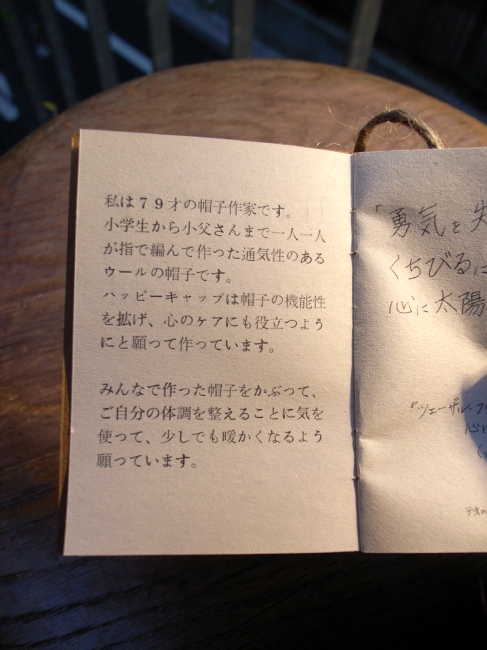 私は７９才の帽子作家です。
小学生から小父さんまで一人一人
が指で編んで作った通気性のある
ウールの帽子です。
ハッピーキャップは帽子の機能性
を拡げ、心のケアにも役立つよう
にと願って作っています。
みんなで作った帽子をかぶって、
ご自分の体調を整えることに気を
使って、少しでも暖かくなるよう
願っています。
「勇気を失
くちびるに
心に太陽
『ツェーザル・フ
心に